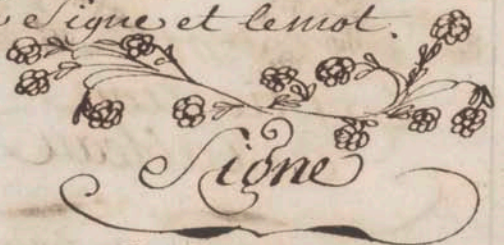 Signe et lemot.
Signe